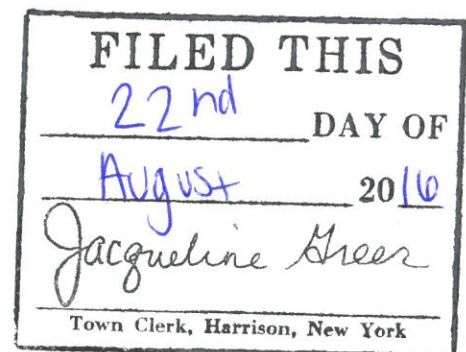 FILED THIS
22nd DAY OF
August 2016
Jacqueline Greer
Town Clerk, Harrison, New York